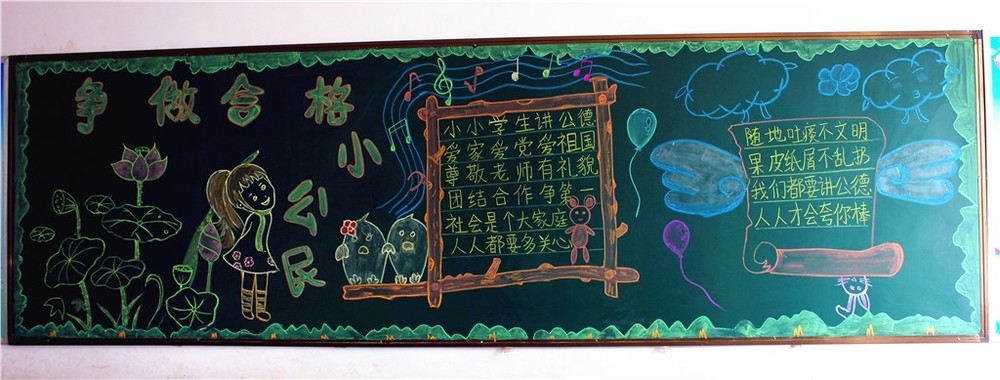 争做合格
小
公
民
小小学生讲公德
爱家爱党爱祖国
尊敬老师有礼貌
团结合作争第一
社会是个大家庭
人人都要多关心
随地吐痰不文明
果皮纸屑不乱扔
我们都要讲公德
人人才会夸你棒